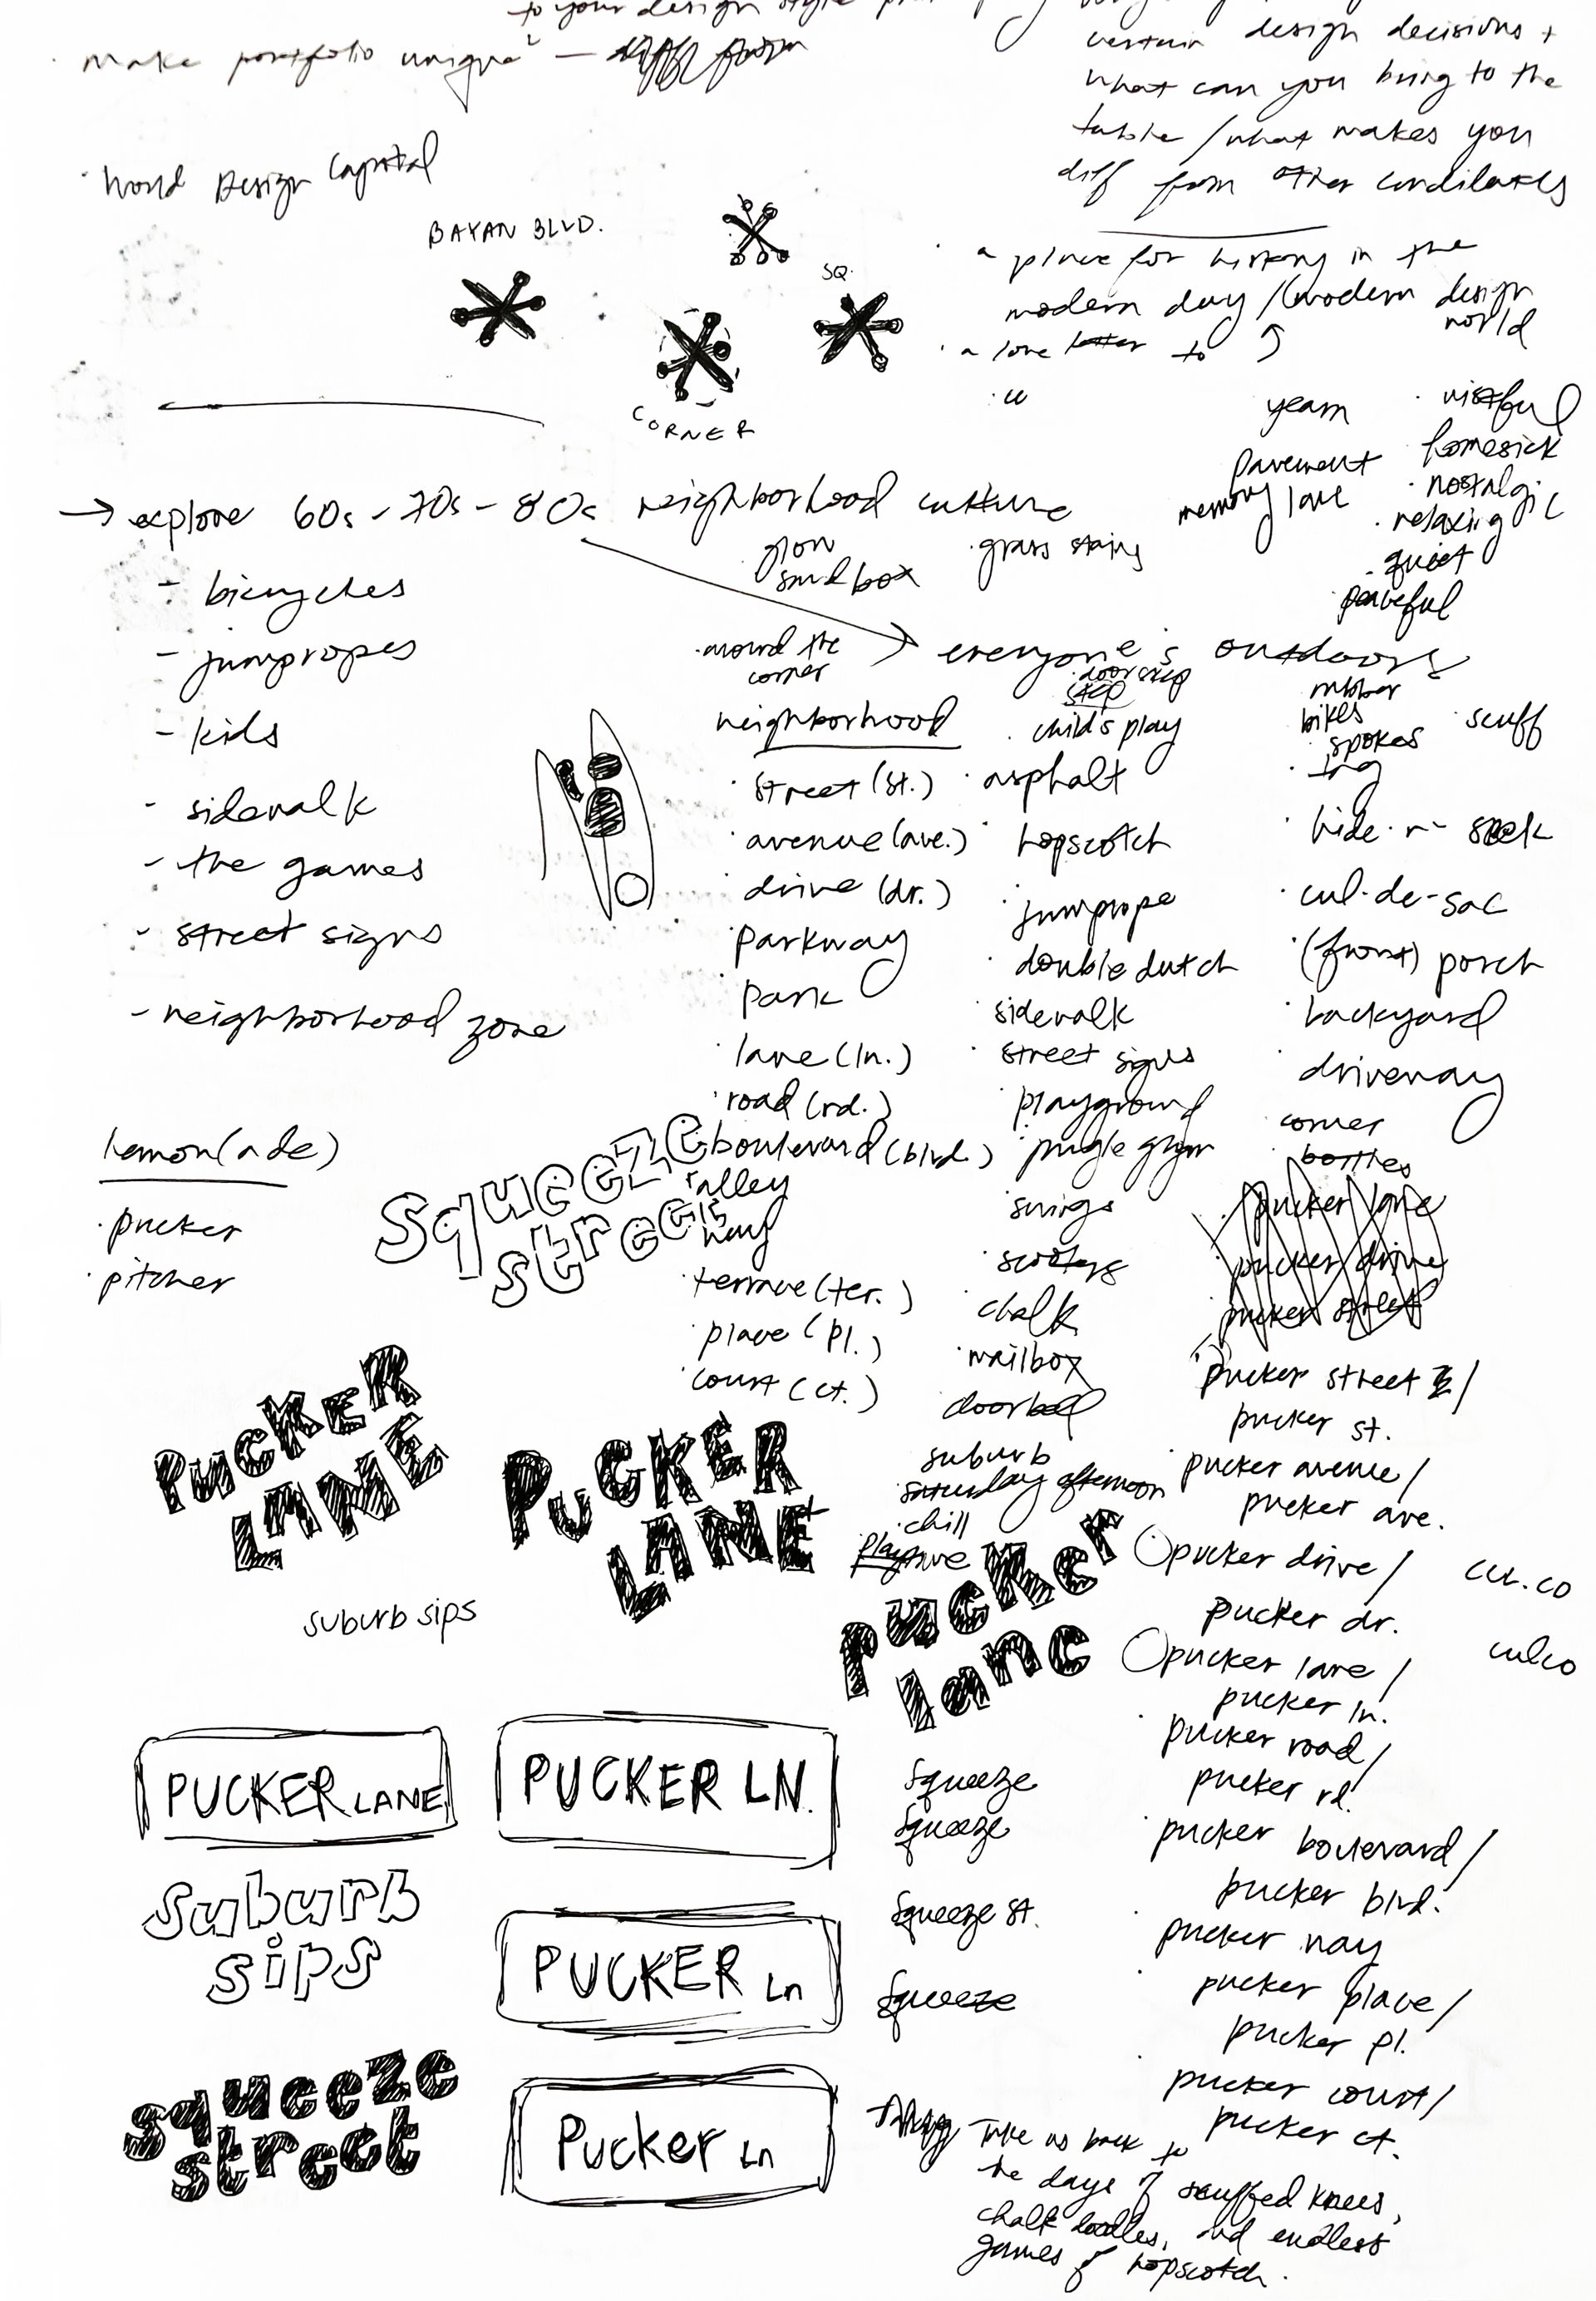 to your design style
make portfolio unique —
certain design decisions +
what can you bring to the
table / what makes you
diff from other candidates
World Design Capital
BAYAN BLVD.
SQ.
CORNER
a place for history in the
modern day / (modern design
world
a love letter to
yearn
pavement
memory lane
wistful
homesick
nostalgic
relaxing
quiet
peaceful
→ explore 60s - 70s - 80s neighborhood culture
- bicyches
- jumpropes
- kids
- sidewalk
- the games
- street signs
- neighborhood zone
glow
sandbox
grass stains
→ everyone's outdoors
around the
corner
neighborhood
street (st.)
avenue (ave.)
drive (dr.)
parkway
park
lane (ln.)
road (rd.)
boulevard (blvd.)
alley
way
terrace (ter.)
place (pl.)
court (ct.)
doorstep
step
child's play
asphalt
hopscotch
jumprope
double dutch
sidewalk
street signs
playground
jungle gym
swings
scooters
chalk
mailbox
doorbell
suburb
saturday afternoon
chill
rubber
bikes
spokes
scuff
tag
hide-n-seek
cul-de-sac
(front) porch
backyard
driveway
corner
bottles
pucker lane
pucker drive
pucker street
pucker street /
pucker st.
pucker avenue /
pucker ave.
pucker drive /
pucker dr.
pucker lane /
pucker ln.
pucker road /
pucker rd.
pucker boulevard /
pucker blvd.
pucker way
pucker place /
pucker pl.
pucker court /
pucker ct.
cul.co
culco
lemon(ade)
pucker
pitcher
squeeze
street
PUCKER
LANE
PUCKER
LANE
pucker
lane
suburb sips
PUCKER LANE
PUCKER LN.
suburb
sips
PUCKER Ln
squeeze
street
Pucker Ln
Squeeze
Squeeze
Squeeze st.
Squeeze
Take us back to
the days of scuffed knees,
chalk doodles, and endless
games of hopscotch.